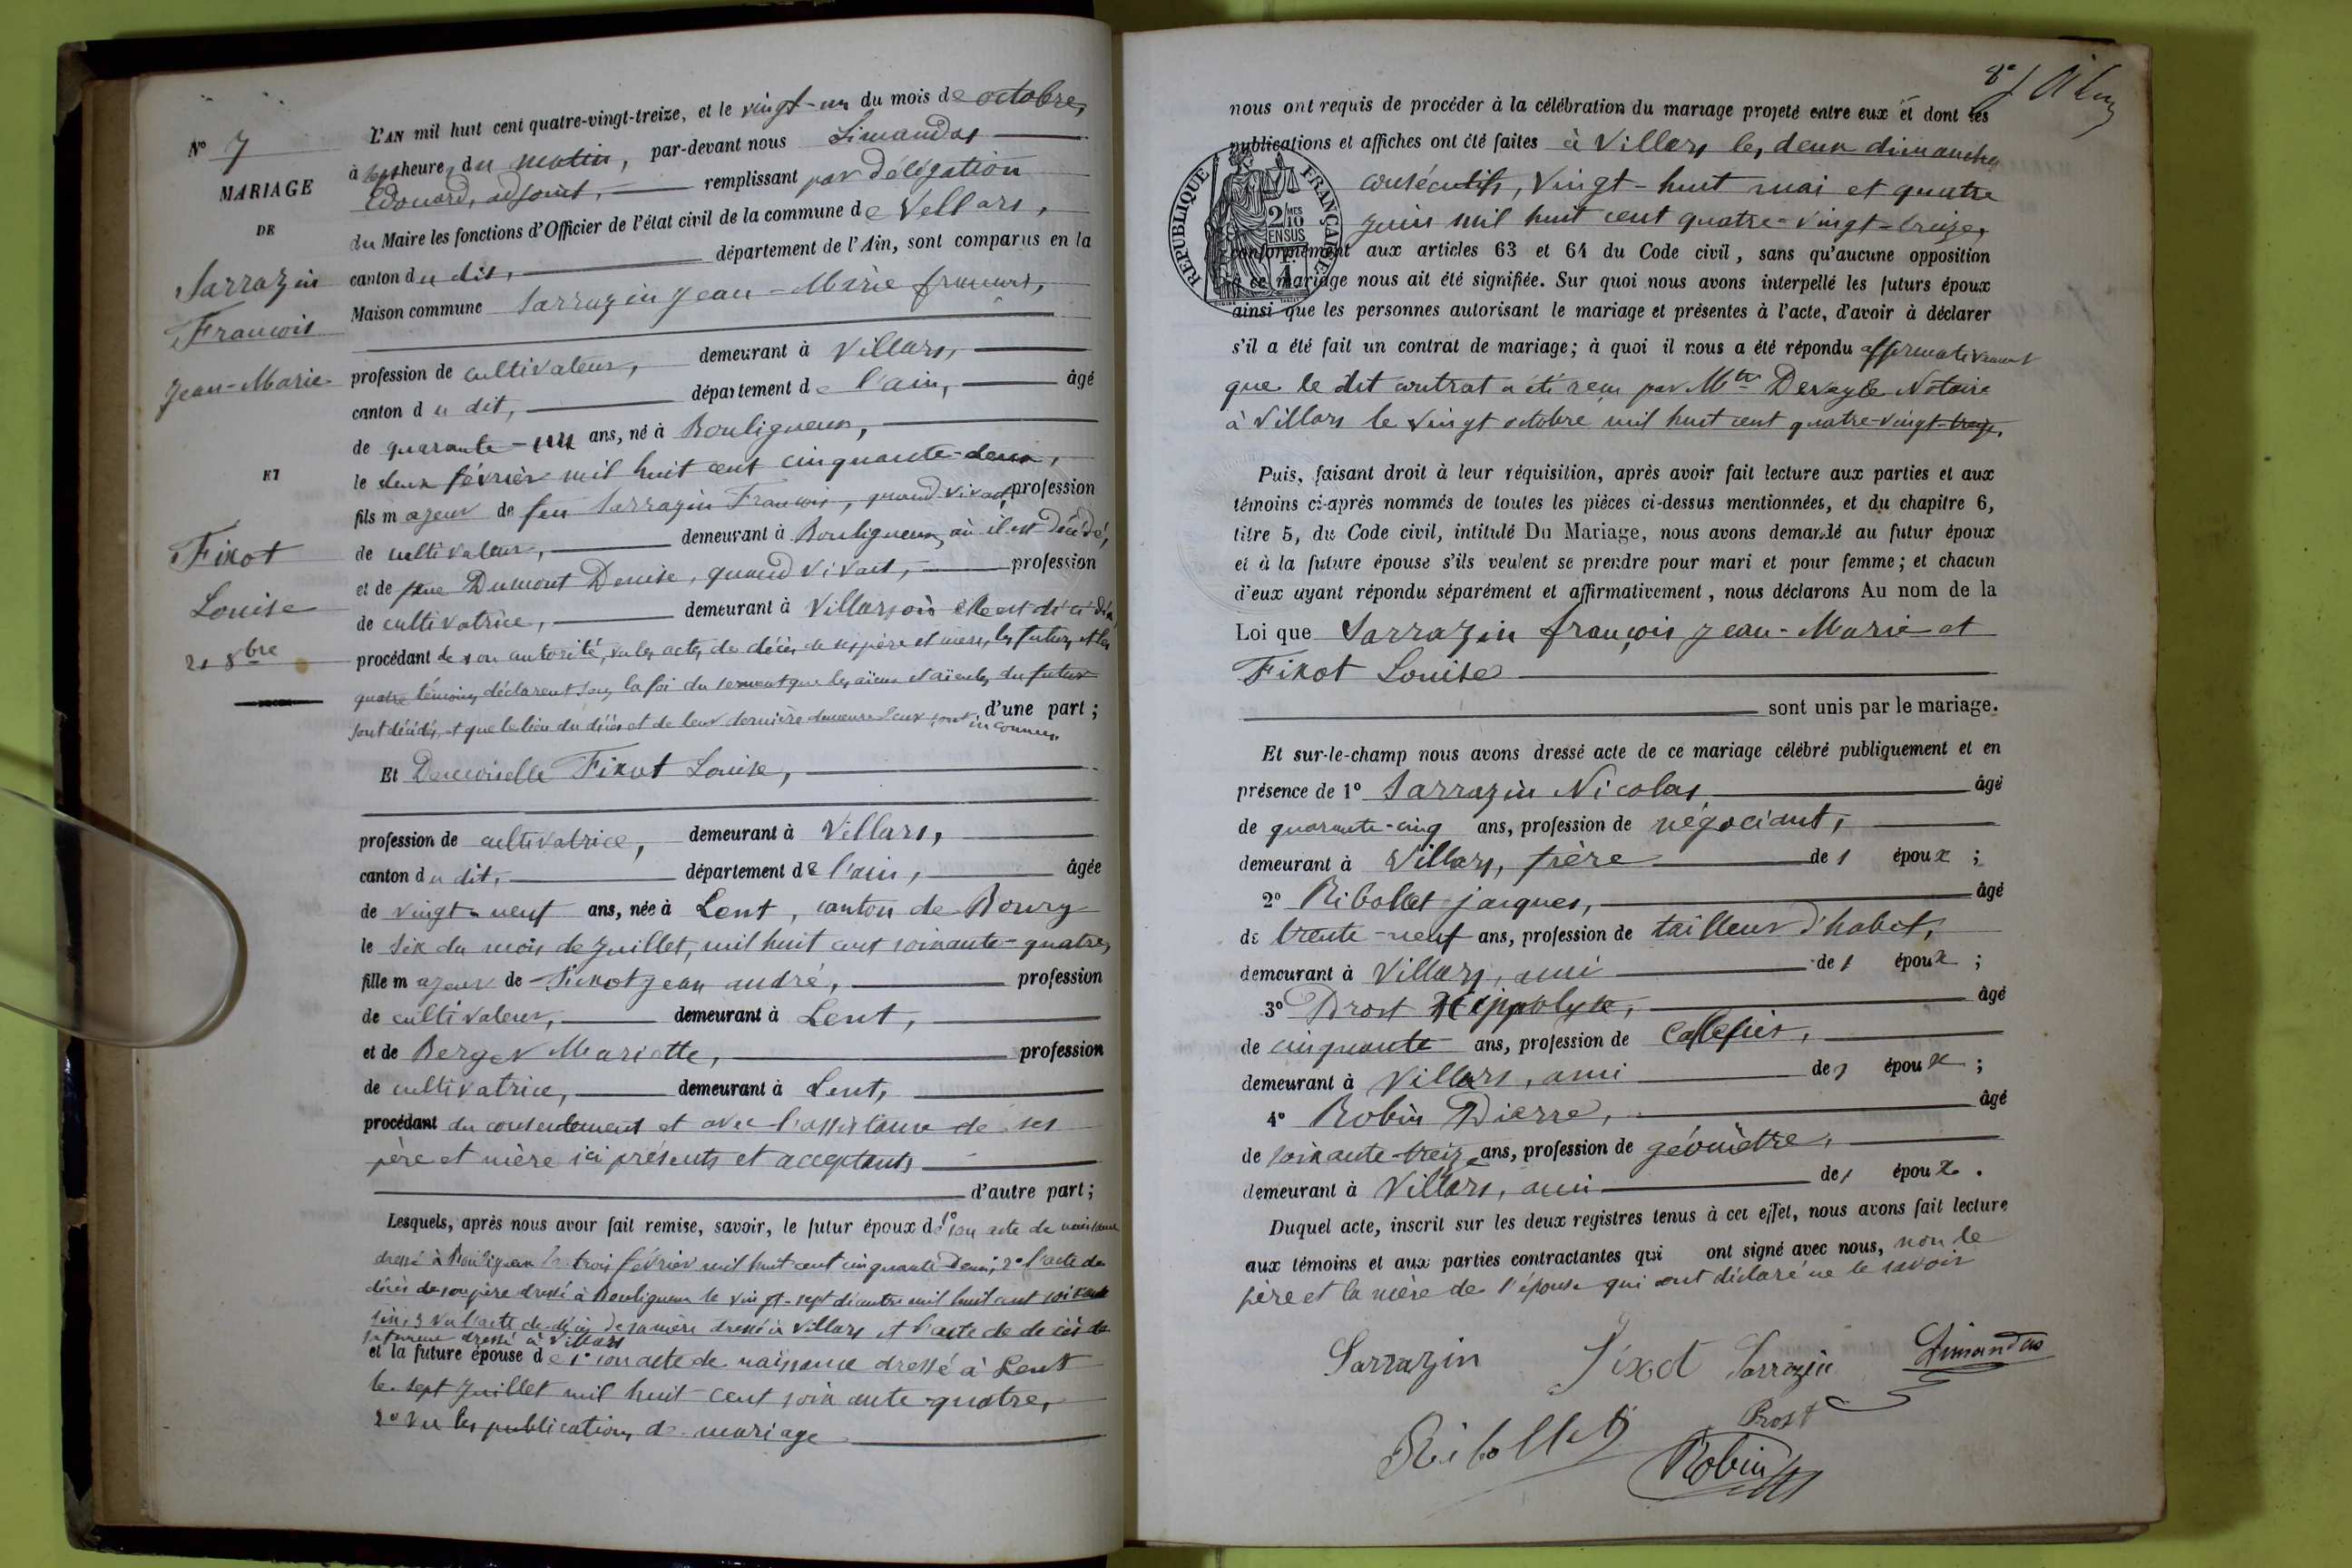 N° 7
MARIAGE
DE
Sarrazin
François
Jean-Marie
ET
Fixot
Louise
21 8bre
L'AN mil huit cent quatre-vingt-treize, et le vingt-un du mois de octobre,
à sept heures du matin, par-devant nous Simandas
Edouard, adjoint, remplissant par délégation
du Maire les fonctions d'Officier de l'état civil de la commune de Villars,
canton du dit, département de l'Ain, sont comparus en la
Maison commune Sarrazin Jean-Marie françois,
profession de cultivateur, demeurant à Villars,
canton du dit, département de l'ain, âgé
de quarante-un ans, né à Bouligneux,
le deux février mil huit cent cinquante-deux,
fils majeur de feu Sarrazin François, quand vivait, profession
de cultivateur, demeurant à Bouligneux, où il est décédé,
et de feue Dumont Denise, quand vivait, profession
de cultivatrice, demeurant à Villars, où elle est décédée,
procédant de son autorité, vu les actes de décès de ses père et mère, les futurs et les
quatre témoins déclarent sous la foi du serment que les aïeux et aïeules du futur
sont décédés, et que le lieu du décès et de leur dernière demeure leur sont inconnus d'une part ;
Et Demoiselle Fixot Louise,
profession de cultivatrice, demeurant à Villars,
canton du dit, département de l'ain, âgée
de vingt-neuf ans, née à Lent, canton de Bourg
le six du mois de juillet, mil huit cent soixante-quatre,
fille majeur de Fixot jean andré, profession
de cultivateur, demeurant à Lent,
et de Berger Mariette, profession
de cultivatrice, demeurant à Lent,
procédant du consentement et avec l'assistance de ses
père et mère ici présents et acceptants
d'autre part ;
Lesquels, après nous avoir fait remise, savoir, le futur époux de 1° son acte de naissance
dressé à Bouligneux le trois février mil huit cent cinquante deux, 2° l'acte de
décès de son père dressé à Bouligneux le vingt-sept mil huit cent soixante
six, 3 vu l'acte de décès de sa mère dressé à Villars et l'acte de décès de
dressé à Villars
et la future épouse de 1° son acte de naissance dressé à Lent
le sept juillet mil huit cent soixante quatre,
2° Vu les publications de mariage
8e
nous ont requis de procéder à la célébration du mariage projeté entre eux et dont les
publications et affiches ont été faites à Villars les deux dimanches
consécutifs, vingt-huit mai et quatre
juin mil huit cent quatre-vingt-treize,
conformément aux articles 63 et 64 du Code civil, sans qu'aucune opposition
à ce mariage nous ait été signifiée. Sur quoi nous avons interpellé les futurs époux
ainsi que les personnes autorisant le mariage et présentes à l'acte, d'avoir à déclarer
s'il a été fait un contrat de mariage ; à quoi il nous a été répondu affirmativement
que le dit contrat a été reçu par Mtre Notaire
à Villars le vingt octobre mil huit cent quatre-vingt-treize.
RÉPUBLIQUE FRANÇAISE
2/10 MES
EN SUS
1
Puis, faisant droit à leur réquisition, après avoir fait lecture aux parties et aux
témoins ci-après nommés de toutes les pièces ci-dessus mentionnées, et du chapitre 6,
titre 5, du Code civil, intitulé Du Mariage, nous avons demandé au futur époux
et à la future épouse s'ils veulent se prendre pour mari et pour femme ; et chacun
d'eux ayant répondu séparément et affirmativement, nous déclarons Au nom de la
Loi que Sarrazin françois Jean-Marie et
Fixot Louise
sont unis par le mariage.
Et sur-le-champ nous avons dressé acte de ce mariage célébré publiquement et en
présence de 1° Sarrazin Nicolas âgé
de quarante-cinq ans, profession de négociant,
demeurant à Villars, frère de l époux ;
2° Ribollet jacques, âgé
de trente-neuf ans, profession de tailleur d'habit,
demeurant à Villars, ami de l époux ;
3° Prost Hippolyte, âgé
de cinquante ans, profession de Cafetier,
demeurant à Villars, ami de l époux ;
4° Robin Pierre, âgé
de soixante-treize ans, profession de géomètre,
demeurant à Villars, ami de l époux.
Duquel acte, inscrit sur les deux registres tenus à cet effet, nous avons fait lecture
aux témoins et aux parties contractantes qui ont signé avec nous, non le
père et la mère de l'épouse qui ont déclaré ne le savoir
Sarrazin Fixot Sarrazin Simandas
Ribollet Prost
Robin